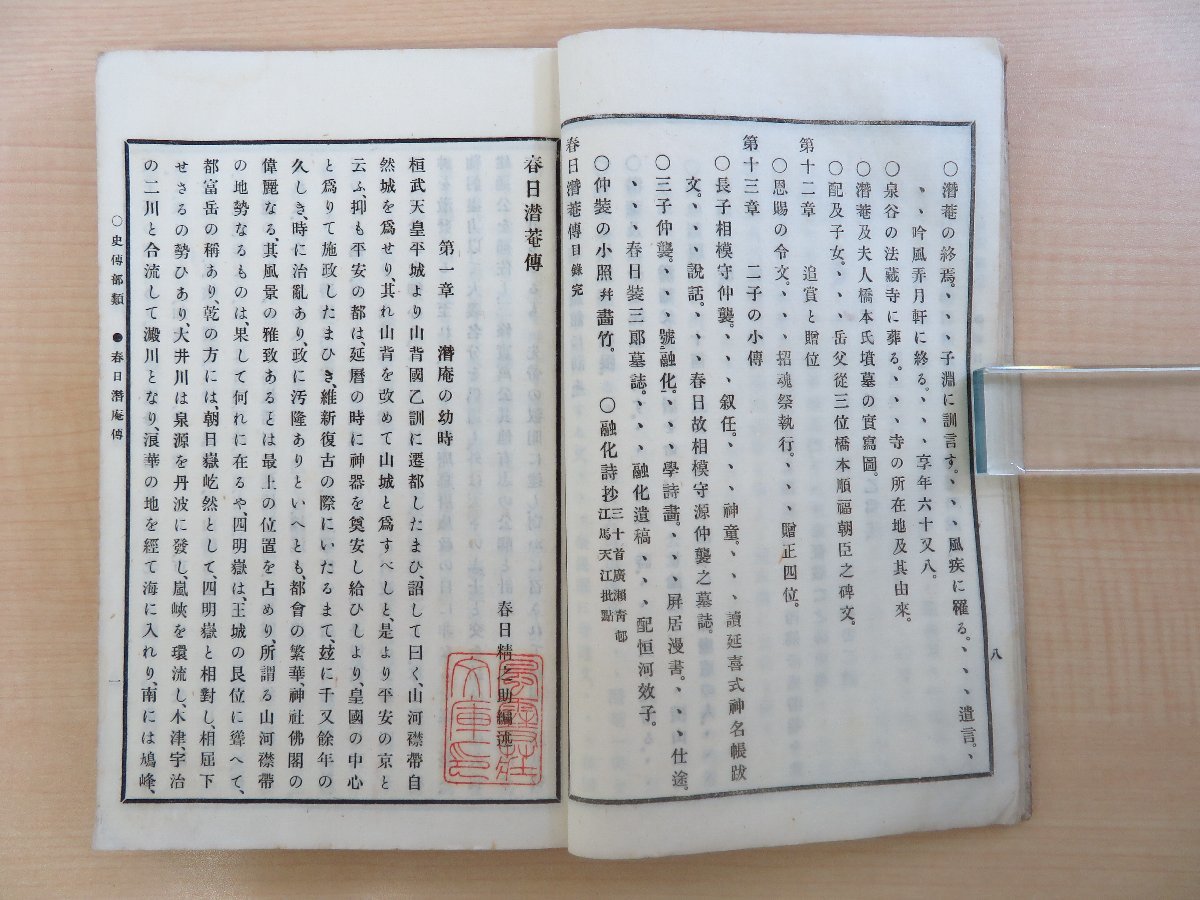 ○潛菴の終焉。、、子淵に訓言す。、、風疾に罹る。、、遺言。、
、吟風弄月軒に終る。、、享年六十又八。
○泉谷の法藏寺に葬る。、、寺の所在地及其由來。
○潛菴及夫人橋本氏墳墓の實寫圖。
○配及子女。、、岳父從三位橋本順福朝臣之碑文。
第十二章　追賞と贈位
○恩賜の令文。、、招魂祭執行。、、贈正四位。
第十三章　二子の小傳
○長子相模守仲襲。、、叙任。、、神童。、、讀延喜式神名帳跋
文。、、說話。、、春日故相模守源仲襲之墓誌。
○三子仲襲。、、號融化。、、學詩畵。、、屏居漫書。、、仕途。
、、春日裝三郎墓誌。、、融化遺稿、、配恒河效子。
○仲裝の小照幷畵竹。　○融化詩抄三十首廣瀨靑邨江馬天江批點
春日潛菴傳目錄完
八
春日潛菴傳
春日精之助編述
第一章　潛庵の幼時
桓武天皇平城より山背國乙訓に遷都したまひ、詔して曰く、山河襟帶自
然城を爲せり、其れ山背を改めて山城と爲すべしと、是より平安の京と
云ふ、抑も平安の都は、延曆の時に神器を奠安し給ひしより、皇國の中心
と爲りて施政したまひき、維新復古の際にいたるまて、玆に千又餘年の
久しき、時に治亂あり、政に汚隆ありといへとも、都會の繁華、神社佛閣の
偉麗なる、其風景の雅致あるとは最上の位置を占めり、所謂る山河襟帶
の地勢なるものは、果して何れに在るや、四明嶽は、王城の艮位に聳へて、
都富岳の稱あり、乾の方には、朝日嶽屹然として、四明嶽と相對し、相屈下
せさるの勢ひあり、大井川は泉源を丹波に發し、嵐峽を環流し、木津、宇治
の二川と合流して澱川となり、浪華の地を經て海に入れり、南には鳩峰、
○史傳部類　●春日潛庵傳
一